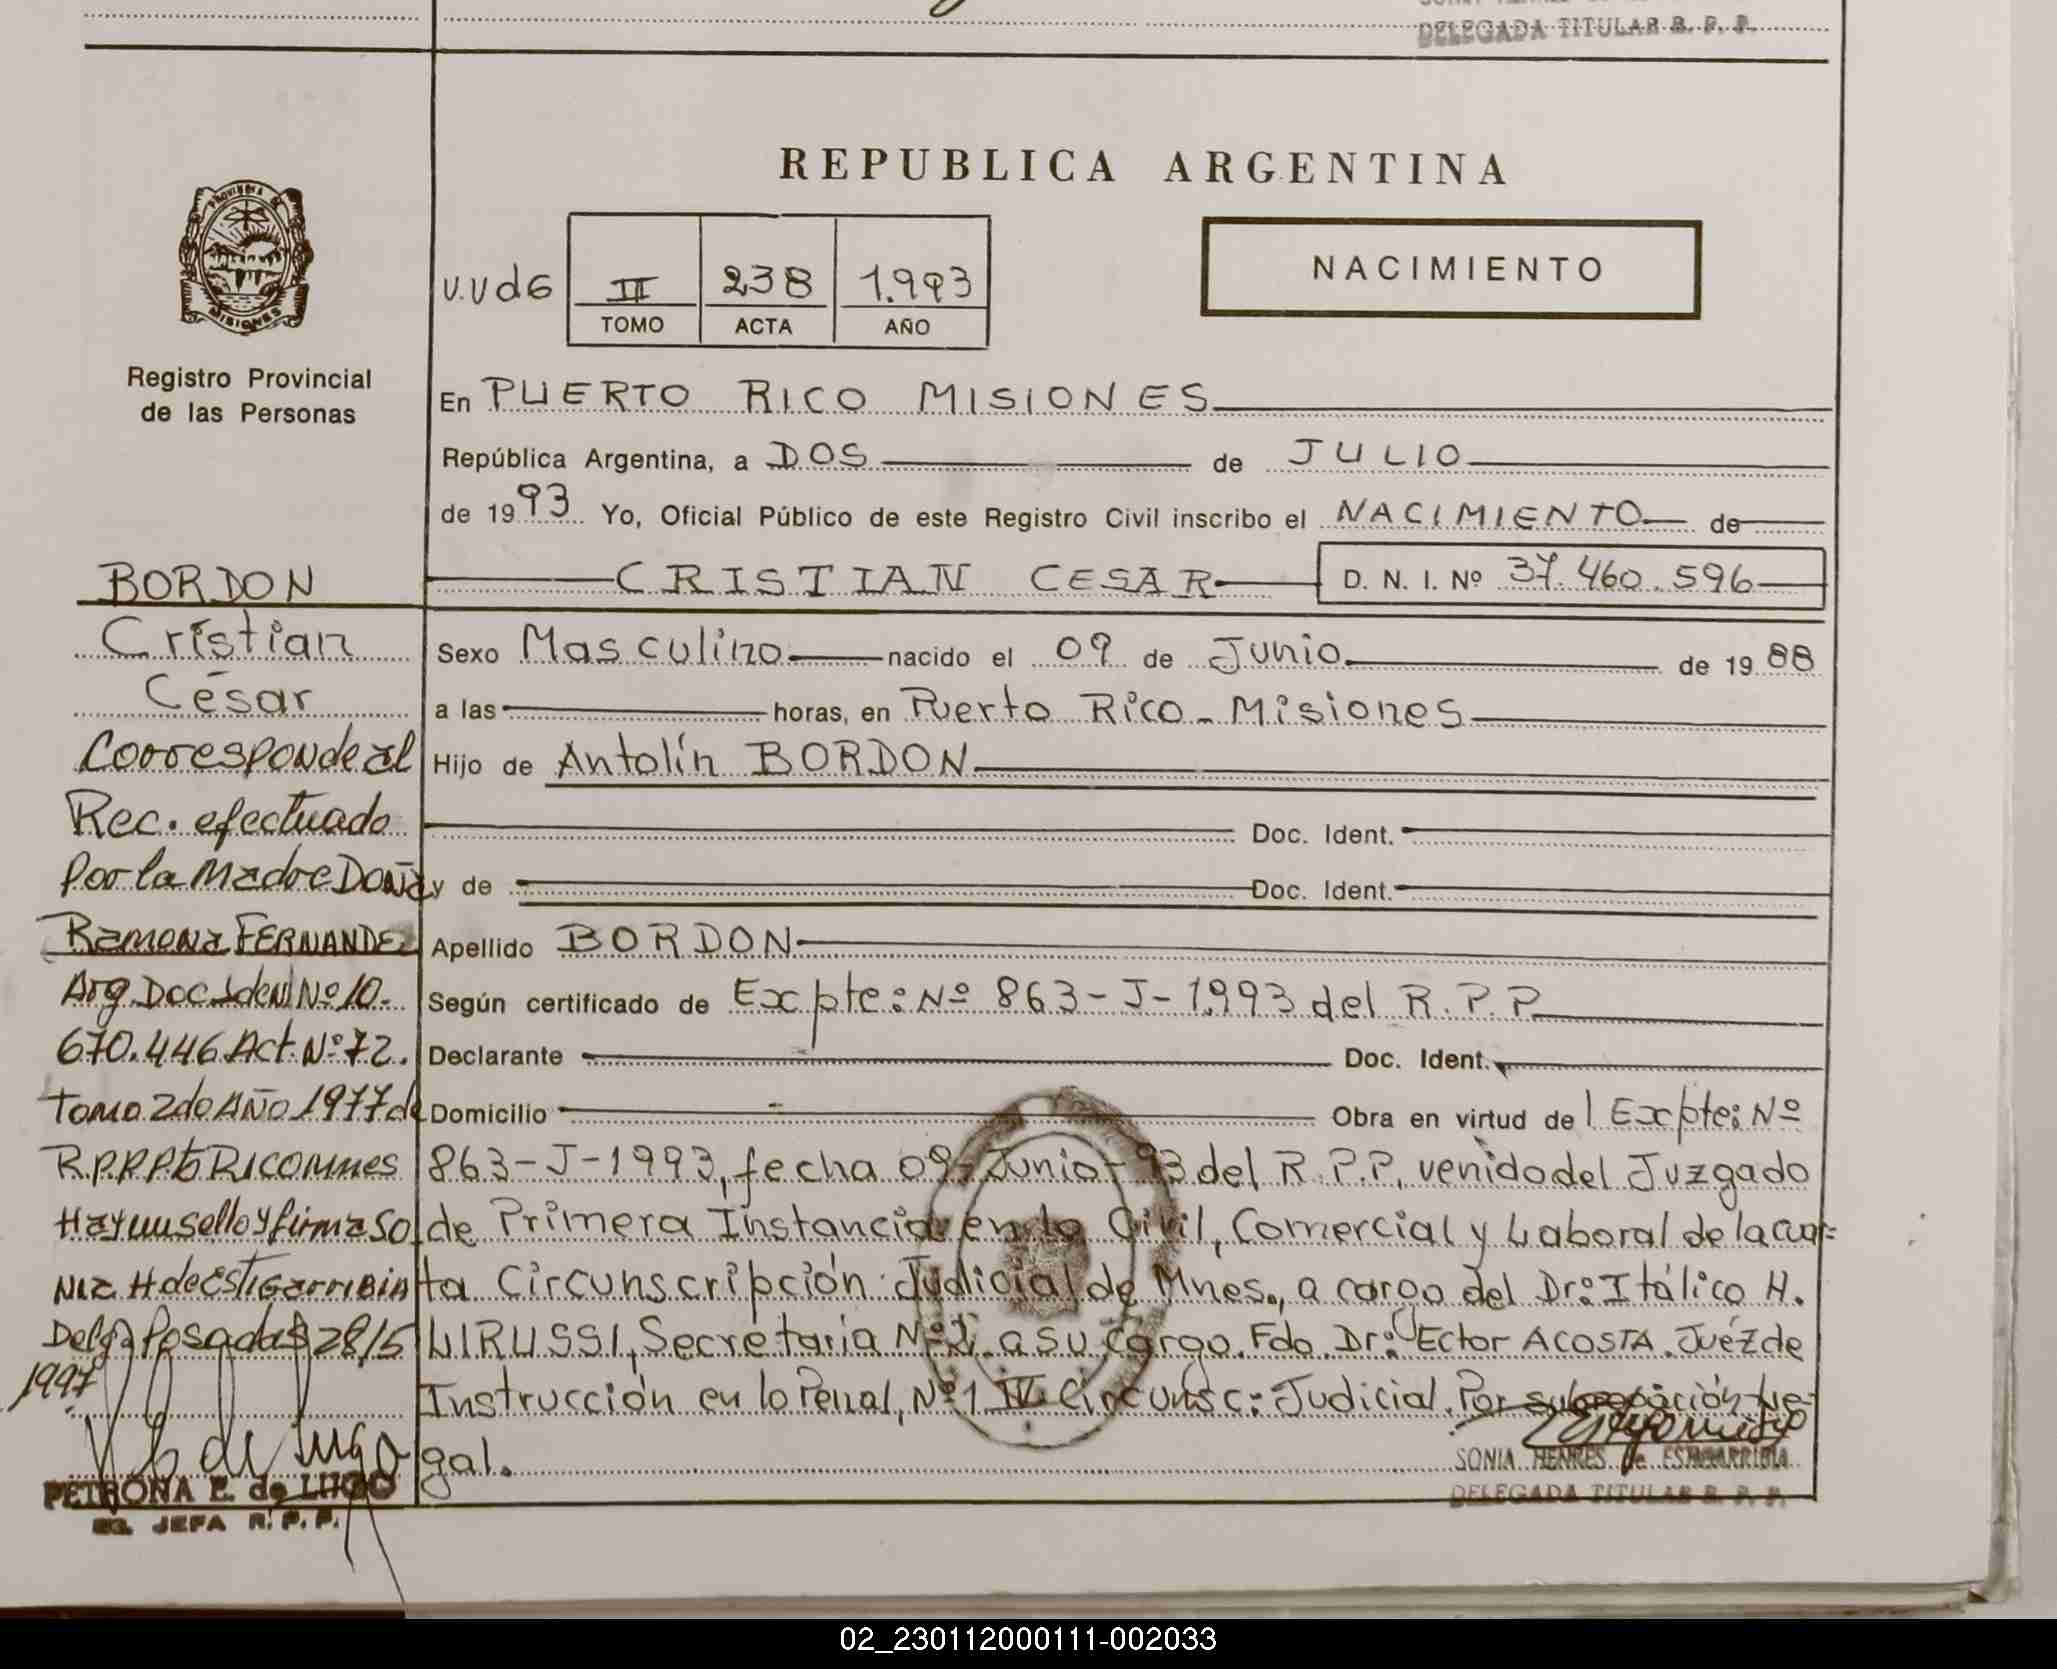 DELEGADA TITULAR R. P. P.
REPUBLICA ARGENTINA
PROVINCIA DE
MISIONES
Registro Provincial
de las Personas
U.Ud6
II 238 1.993
TOMO ACTA AÑO
NACIMIENTO
En PUERTO RICO MISIONES
República Argentina, a DOS de JULIO
de 1993 Yo, Oficial Público de este Registro Civil inscribo el NACIMIENTO de
CRISTIAN CESAR D. N. I. Nº 37.460.596
Sexo Masculino nacido el 09 de Junio de 1988
a las horas, en Puerto Rico - Misiones
Hijo de Antolín BORDON
Doc. Ident.
y de Doc. Ident.
Apellido BORDON
Según certificado de Expte: Nº 863-J-1.993 del R.P.P
Declarante Doc. Ident.
Domicilio Obra en virtud del Expte: Nº
863-J-1993, fecha 09-Junio-93 del R.P.P, venido del Juzgado
de Primera Instancia en lo Civil, Comercial y Laboral de la cuar=
ta Circunscripción Judicial de Mnes., a cargo del Dr: Itálico H.
LIRUSSI, Secretaria Nº a su cargo. Fdo. Dr: Ector ACOSTA. Juéz de
Instrucción en lo Penal, Nº 1 IV Circunsc: Judicial. Por subrogación Le-
gal.
SONIA HENRES de ESTIGARRIBIA
DELEGADA TITULAR R. P. P.
BORDON
Cristian
César
Corresponde al
Rec. efectuado
Por la Madre Doña
Ramona FERNANDEZ
Arg Doc Ident Nº 10.
670.446 Act. Nº 72.
Tomo 2do Año 1977 de
R.P.P. Pto RICO Mnes
Hay un sello y firma So
nia H de Estigarribia
Delg. Posadas 28/5
1997
PETRONA E. de LUGO
JEFA R. P. P.
02_230112000111-002033